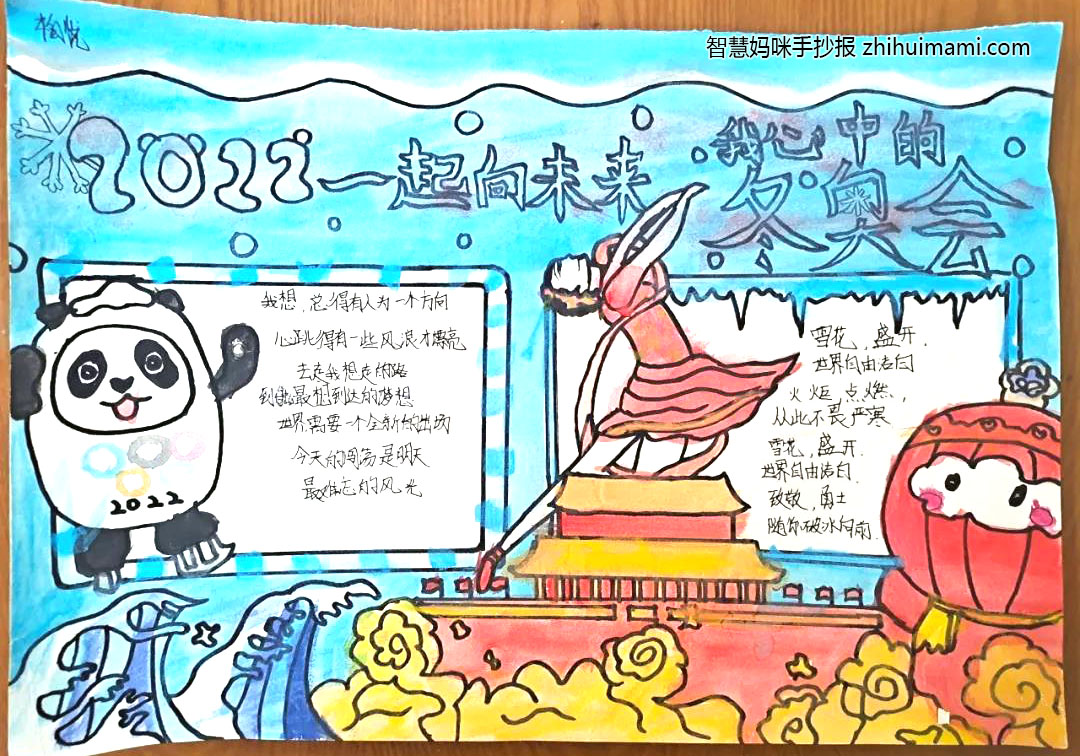 智慧妈咪手抄报 zhihuimami.com
2022一起向未来
我心中的
冬奥会
我想,总得有人为一个方向
心跳得有一些风浪才漂亮
去走我想走的路
到能最想到达的梦想
世界需要一个全新的出场
今天的周易是明天
最难忘的风光
2022
雪花,盛开.
世界自由洁白
火炬,点燃,
从此不畏严寒
雪花,盛开.
世界自由洁白.
致敬,勇士
随你破冰向前.